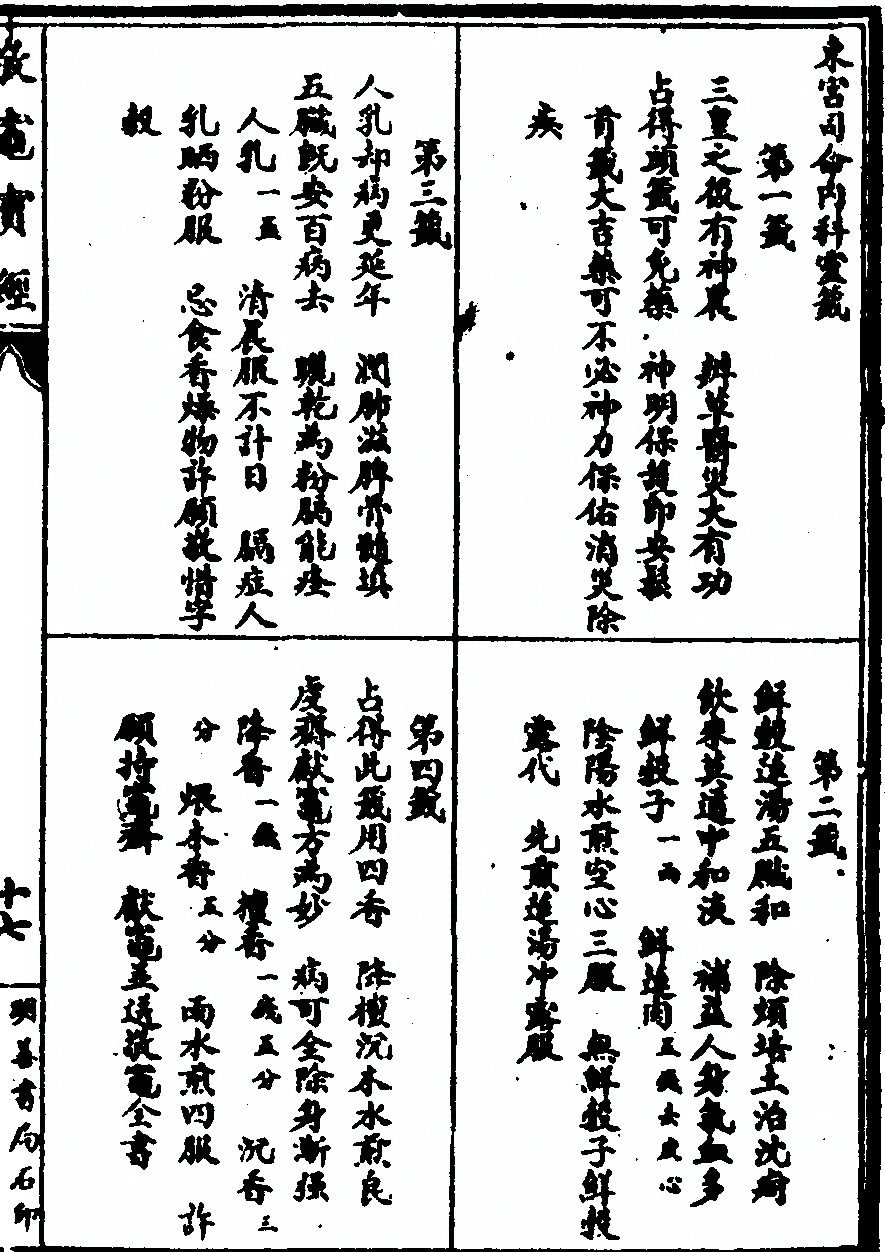 東宮司命內科靈籤
第一籤
三皇之後有神農　辨草醫災大有功
占得頭籤可免藥　神明保護即安鬆
首籤大吉藥可不必神力保佑消災除
疾
第二籤
鮮穀蓮湯五臟和　除煩培土治沈痾
飲來莫道中和淡　補益人身氣血多
鮮穀子一兩　鮮蓮肉五錢去皮心
陰陽水煎空心三服　無鮮穀子鮮穀
露代　先煎蓮湯沖露服
第三籤
人乳却病更延年　潤肺滋脾骨髓填
五臟既安百病去　曬乾為粉膈能痊
人乳一盃　清晨服不計日　膈症人
乳晒粉服　忌食香燥物許願敬惜字
穀
第四籤
占得此籤用四香　降檀沉木水煎良
虔齋獻竈方為妙　病可全除身漸強
降香一錢　檀香一錢五分　沉香三
分　煨木香五分　雨水煎四服　許
願持竈齋　獻竈並送敬竈全書
敬竈寶經
十七
明善書局石印